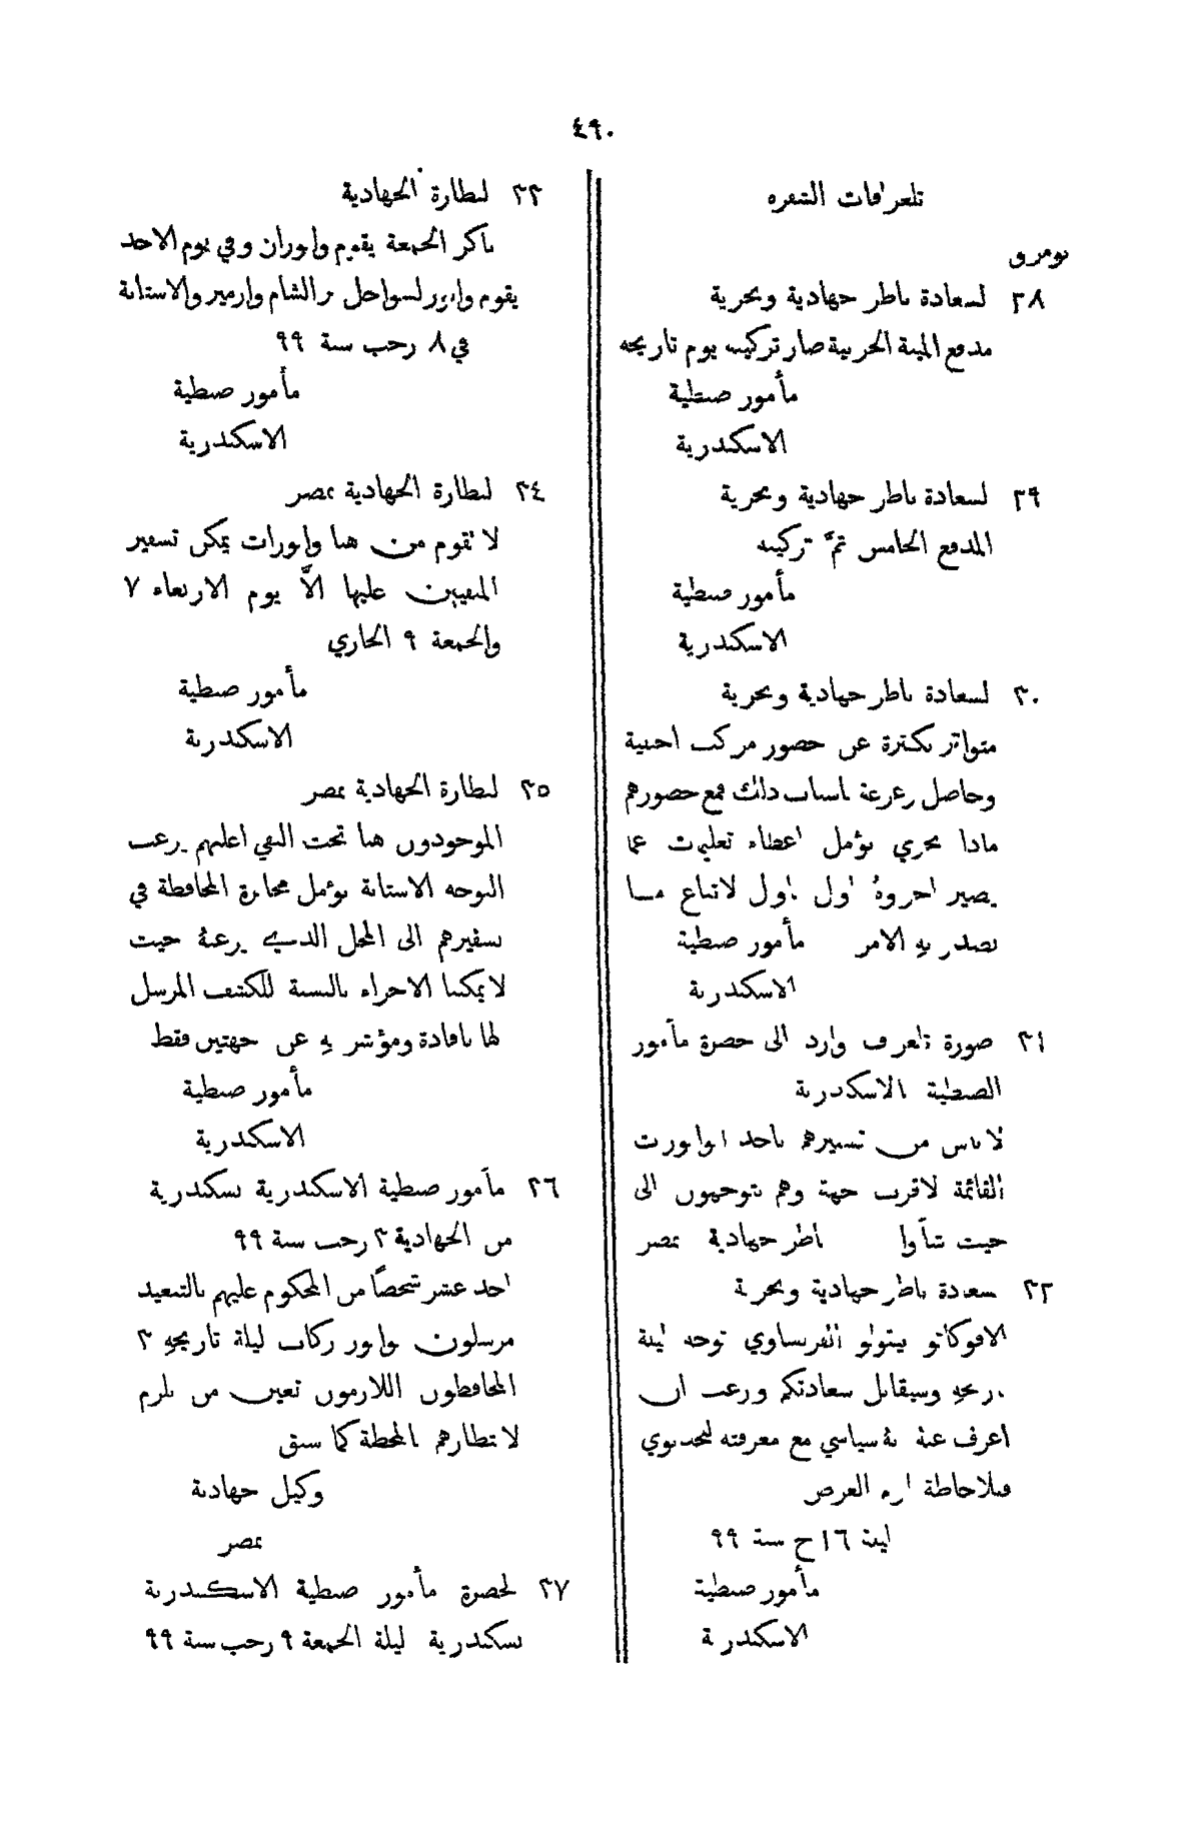 ٤٩٠
تلغرافات الشفره
نومرو
٢٨ لسعادة ناظر جهادية وبحرية
مدفع المينة الحربية صار تركيبه يوم تاريخه
مأمور ضبطية
الاسكندرية
٢٩ لسعادة ناظر جهادية وبحرية
المدفع الخامس تمَّ تركيبه
مأمور ضبطية
الاسكندرية
٣٠ لسعادة ناظر جهادية وبحرية
متواتر بكثرة عن حضور مركب اجنبية
وحاصل زعزعة باسباب ذلك فمع حضورهم
ماذا يجري نؤمل اعطاء تعليمات عما
يصير اجروهُ اول باول لاتباع مــا
يصدر بهِ الامر مأمور ضبطية
الاسكندرية
٣١ صورة تلغراف وارد الى حضرة مأمور
الضبطية بالاسكندرية
لا باس من تسفيرهم باحد الوابورات
القائمة لاقرب جهة وهم يتوجهون الى
حيث شأوا ناظر جهادية بمصر
٣٢ سعادة ناظر جهادية وبحرية
الافوكاتو بيتولو الفرنساوي توجه ليلة
تاريخهِ وسيقابل سعادتكم ورغب ان
اعرف عنهُ سياسي مع معرفته للخديوي
فبلاحاطة لزم العرض
ليلة ١٦ ج سنة ٩٩
مأمور ضبطية
الاسكندرية
٣٣ لنظارة الجهادية
باكر الجمعة يقوم وابوران وفي يوم الاحد
يقوم وابور لسواحل بر الشام وازمير والاستانة
في ٨ رجب سنة ٩٩
مأمور ضبطية
الاسكندرية
٣٤ لنظارة الجهادية بمصر
لا تقوم من هنا وابورات يمكن تسفير
المنفيين عليها الاَّ يوم الاربعاء ٧
والجمعة ٩ الجاري
مأمور ضبطية
الاسكندرية
٣٥ لنظارة الجهادية بمصر
الموجودون هنا تحت النفي اغلبهم يرغب
التوجه الاستانة نؤمل مخابرة المحافظة في
تسفيرهم الى المحل الذي يرغبهُ حيث
لا يمكنا الاجراء بالنسبة للكشف المرسل
لها بافادة ومؤشر بهِ عن جهتين فقط
مأمور ضبطية
الاسكندرية
٣٦ مأمور ضبطية الاسكندرية بسكندرية
من الجهادية ٣ رجب سنة ٩٩
احد عشر شخصًا من المحكوم عليهم بالتبعيد
مرسلون بوابور ركاب ليلة تاريخهِ ٣
المحافظون اللازمون تعين من يلزم
لانتظارهم بالمحطة كما سبق
وكيل جهادية
بمصر
٣٧ لحضرة مأمور ضبطية الاسكندرية
بسكندرية ليلة الجمعة ٩ رجب سنة ٩٩